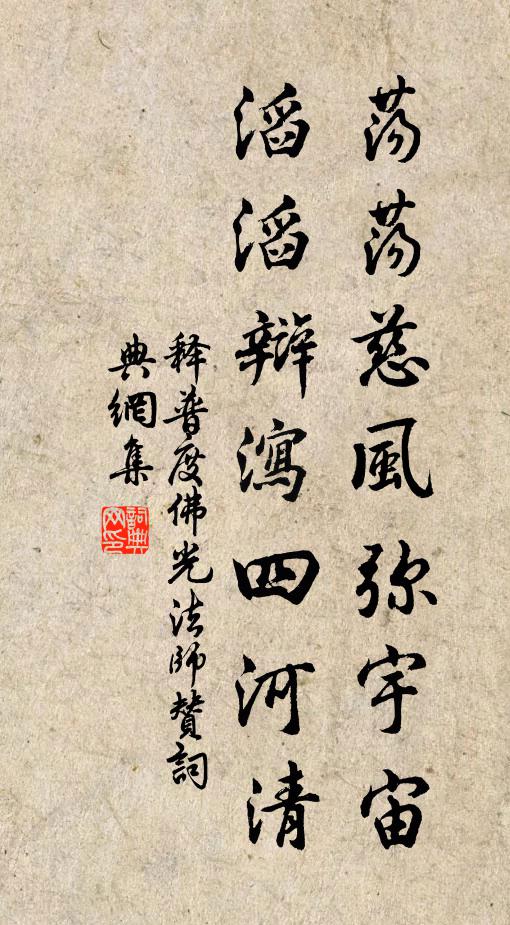 荡荡慈風弥宇宙
滔滔辯瀉四河清
释普度佛光法師賛詞
典網集
詞典網印